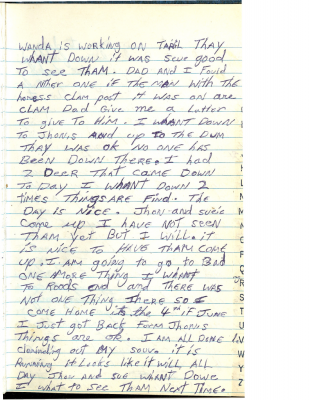 WANDA is WORKING ON TABIL THAY
WHANT DOWN it WAS SEUE good
To SEE THAM. DAD AND I Found
A NTHER ONE IF THE MAN WITH THE
CLAM POST it WAS ON ONE
CLAM DAD Give ME A LETTER
To give To HiM. I WHANT DOWN
To Jhonis AND up To THE DUM
THAY WAS OK NO ONE HAS
BEEN DOWN THERE. I HAD
2 DEER THAT CAME DOWN
To DAY I WHANT DOWN 2
times THINGS ARE FINd. THE
DAY is NiCE. Jhon AND suzie
Come up I HAVE NOT SEEN
THAM YET BUT I WILL. it
is NiCE To HAVE THAM COME
up. I AM going to go To BED
ONE AMORE THING I WHANT
To Roods END AND THERE WAS
NOT ONE THING THERE SO I
COME HOME its THE 4TH iF JUNE
I JUST GOT BACK FORM Jhonus
THINGS ARE OK. I AM ALL DONE
out My it is
RUNNiNg it Looks Like it WiLL ALL
DAY Jhon AND SUE WHANT DOWE
I WHAT to SEE THAM NEXT TIME.
L
M
N
O
P
Q
R
S
T
U
V
W
Y
Z